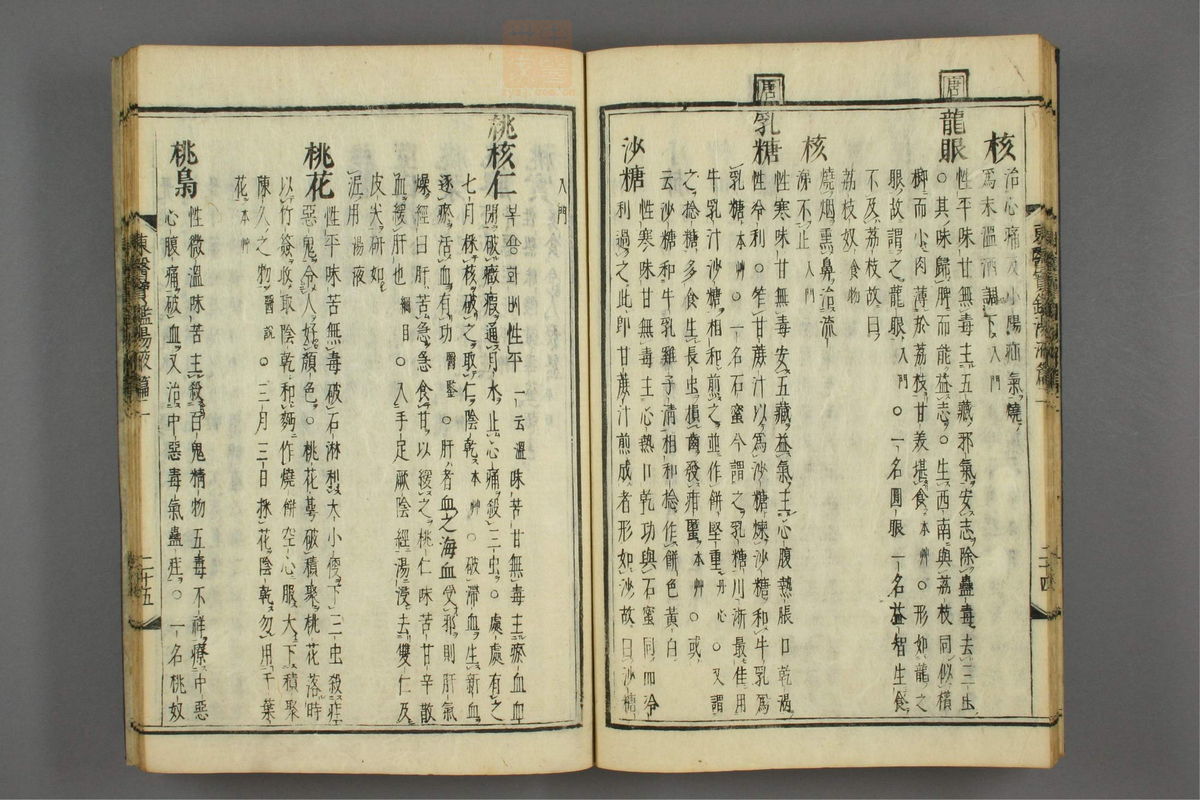 核
治心痛及小腸疝氣燒
爲末溫酒調下入門
唐 龍眼
性平味甘無毒主五藏邪氣安志除蠱毒去三虫
○其味歸脾而能益志○生西南與荔枝同似檳
榔而小肉薄於荔枝甘美堪食本艸○形如龍之
眼故謂之龍眼入門○一名圓眼一名益智生食
不及荔枝故曰
荔枝奴食物
核
燒烟熏鼻治流
涕不止入門
唐 乳糖
性寒味甘無毒安五藏益氣主心腹熱脹口乾渴
性冷利○笮甘蔗汁以爲沙糖煉沙糖和牛乳爲
乳糖本艸○一名石蜜今謂之乳糖川浙最佳用
牛乳汁沙糖相和煎之並作餅堅重丹心○又謂
之捻糖多食生長虫損齒發疳䘌本艸○或
云沙糖和牛乳雞子清相和捻作餠色黃白
沙糖
性寒味甘無毒主心熱口乾功與石蜜同而冷
利過之此即甘蔗汁煎成者形如沙故曰沙糖
東醫寶鑑湯液篇二
二十四
入門
桃核仁
복숑화ᄡᅵ性平一云溫味苦甘無毒主瘀血血
閉破癥瘕通月水止心痛殺三虫○處處有之
七月採核破之取仁陰乾本艸○破滯血生新血
逐瘀活血有功醫鑑○肝者血之海血受邪則肝氣
燥經曰肝苦急急食甘以緩之桃仁味苦甘辛散
血緩肝也綱目○入手足厥陰經湯浸去雙仁及
皮尖硏如
泥用湯液
桃花
性平味苦無毒破石淋利大小便下三虫殺疰
惡鬼令人好顏色○桃花蕚破積聚桃花落時
以竹簽收取陰乾和麪作燒餠空心服大下積聚
陳久之物醫說○三月三日採花陰乾勿用千葉
花本艸
桃梟
性微溫味苦主殺百鬼精物五毒不祥療中惡
心腹痛破血又治中惡毒氣蠱疰○一名桃奴
東醫寶鑑湯液篇二
二十五